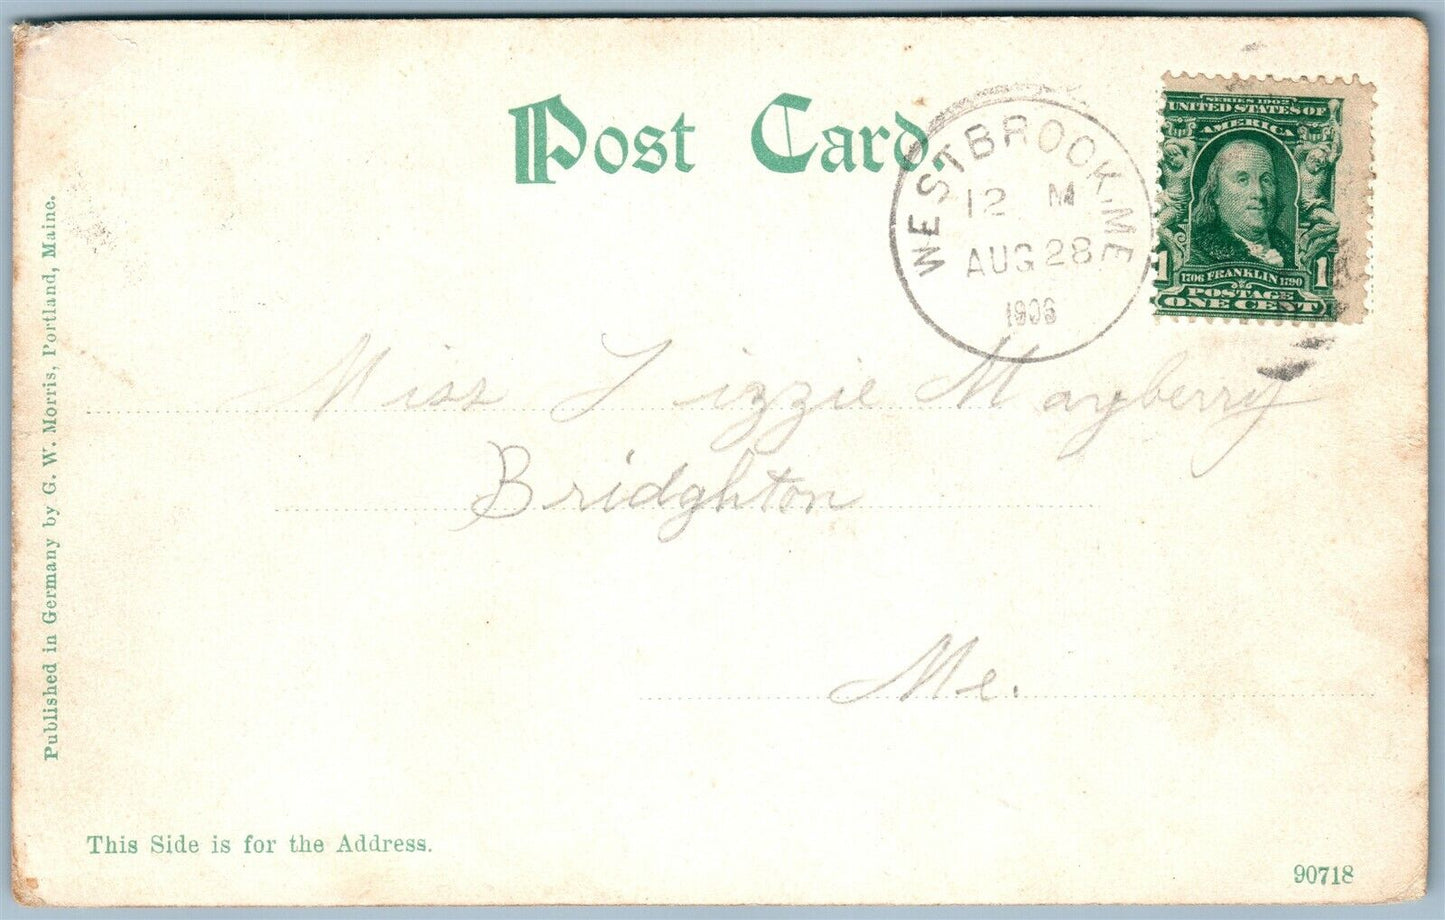 Post Card.
WESTBROOK. ME
12 M
AUG 28
1906
SERIES 1902
UNITED STATES OF
AMERICA
1706 FRANKLIN 1790
1 1
POSTAGE
ONE CENT
Miss Lizzie Mayberry
Bridghton
Me.
Published in Germany by G. W. Morris, Portland, Maine.
This Side is for the Address.
90718